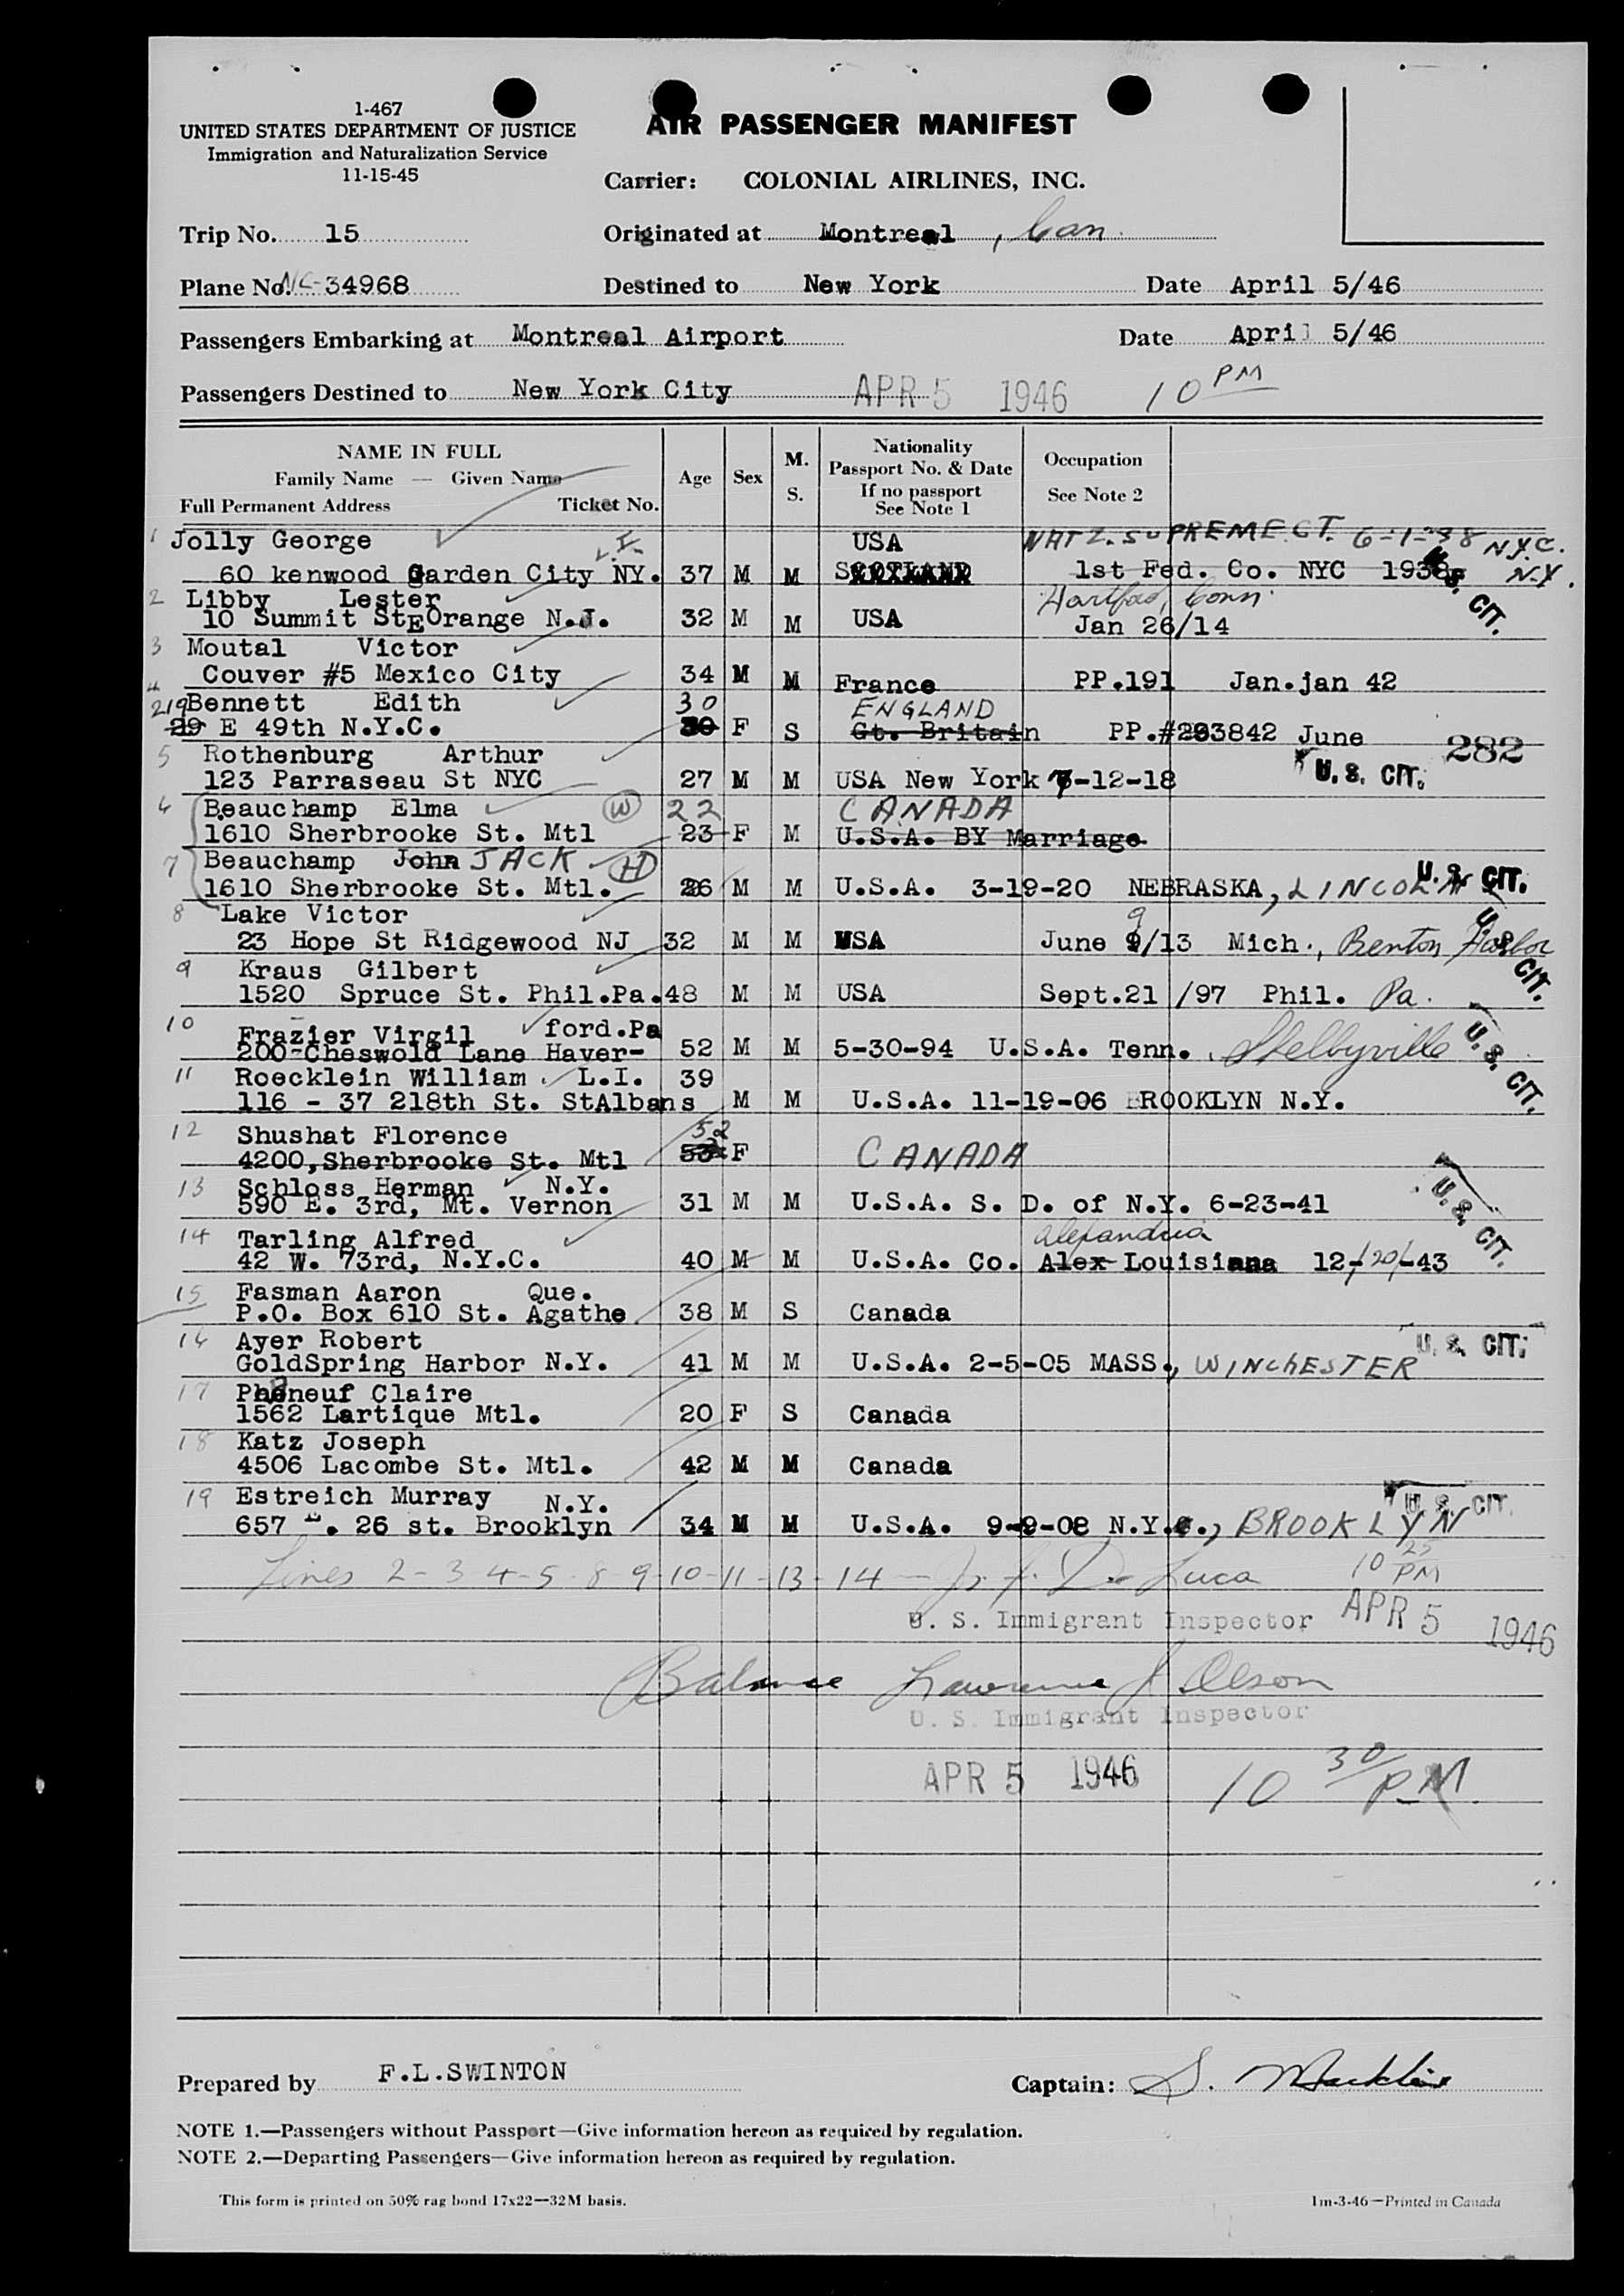 1-467
UNITED STATES DEPARTMENT OF JUSTICE
Immigration and Naturalization Service
11-15-45
AIR PASSENGER MANIFEST
Carrier: COLONIAL AIRLINES, INC.
Trip No. 15 Originated at Montreal, Can.
Plane No. NC-34968 Destined to New York Date April 5/46
Passengers Embarking at Montreal Airport Date April 5/46
Passengers Destined to New York City APR 5 1946 10 PM
NAME IN FULL
Family Name — Given Name
Full Permanent Address Ticket No.
Age Sex M. S.
Nationality
Passport No. & Date
If no passport
See Note 1
Occupation
See Note 2
1 Jolly George USA NATZ. SUPREME CT. 6-1-38 N.Y.C.
L.I. N.Y.
60 kenwood Garden City NY. 37 M M SCOTLAND 1st Fed. Co. NYC 1938 U.S. CIT.
2 Libby Lester Hartford, Conn.
10 Summit St E Orange N.J. 32 M M USA Jan 26/14
3 Moutal Victor
Couver #5 Mexico City 34 M M France PP.191 Jan.jan 42
4 Bennett Edith 30 ENGLAND
219 29 E 49th N.Y.C. 30 F S Gt. Britain PP.#293842 June 282
5 Rothenburg Arthur
123 Parraseau St NYC 27 M M USA New York 7-12-18 U.S. CIT.
6 Beauchamp Elma W 22 CANADA
1610 Sherbrooke St. Mtl 23 F M U.S.A. BY Marriage
7 Beauchamp John JACK H
1610 Sherbrooke St. Mtl. 26 M M U.S.A. 3-19-20 NEBRASKA, LINCOLN U.S. CIT.
8 Lake Victor 9
23 Hope St Ridgewood NJ 32 M M USA June 9/13 Mich., Benton Harbor U.S. CIT.
9 Kraus Gilbert
1520 Spruce St. Phil.Pa. 48 M M USA Sept.21 /97 Phil. Pa.
10 Frazier Virgil ford.Pa
200-Cheswold Lane Haver- 52 M M 5-30-94 U.S.A. Tenn. Shelbyville U.S. CIT.
11 Roecklein William L.I. 39
116 - 37 218th St. StAlbans M M U.S.A. 11-19-06 BROOKLYN N.Y.
12 Shushat Florence 52
4200, Sherbrooke St. Mtl 53 F CANADA
13 Schloss Herman N.Y.
590 E. 3rd, Mt. Vernon 31 M M U.S.A. S. D. of N.Y. 6-23-41 U.S. CIT.
14 Tarling Alfred Alexandria
42 W. 73rd, N.Y.C. 40 M M U.S.A. Co. Alex Louisiana 12-/20/-43
15 Fasman Aaron Que.
P.O. Box 610 St. Agathe 38 M S Canada
16 Ayer Robert
GoldSpring Harbor N.Y. 41 M M U.S.A. 2-5-05 MASS., WINCHESTER U.S. CIT.
17 Pheneuf Claire
1562 Lartique Mtl. 20 F S Canada
18 Katz Joseph
4506 Lacombe St. Mtl. 42 M M Canada
19 Estreich Murray N.Y.
657 E. 26 st. Brooklyn 34 M M U.S.A. 9-9-08 N.Y.C., BROOKLYN U.S. CIT.
Lines 2-3 4-5-8-9-10-11-13-14 — J. J. De Luca 10 25 PM
U. S. Immigrant Inspector APR 5 1946
Balance Lawrence J Olson
U. S. Immigrant Inspector
APR 5 1946 10 30 PM
Prepared by F.L.SWINTON Captain: S.
NOTE 1.—Passengers without Passport—Give information hereon as required by regulation.
NOTE 2.—Departing Passengers—Give information hereon as required by regulation.
This form is printed on 50% rag bond 17x22—32M basis. 1m-3-46—Printed in Canada